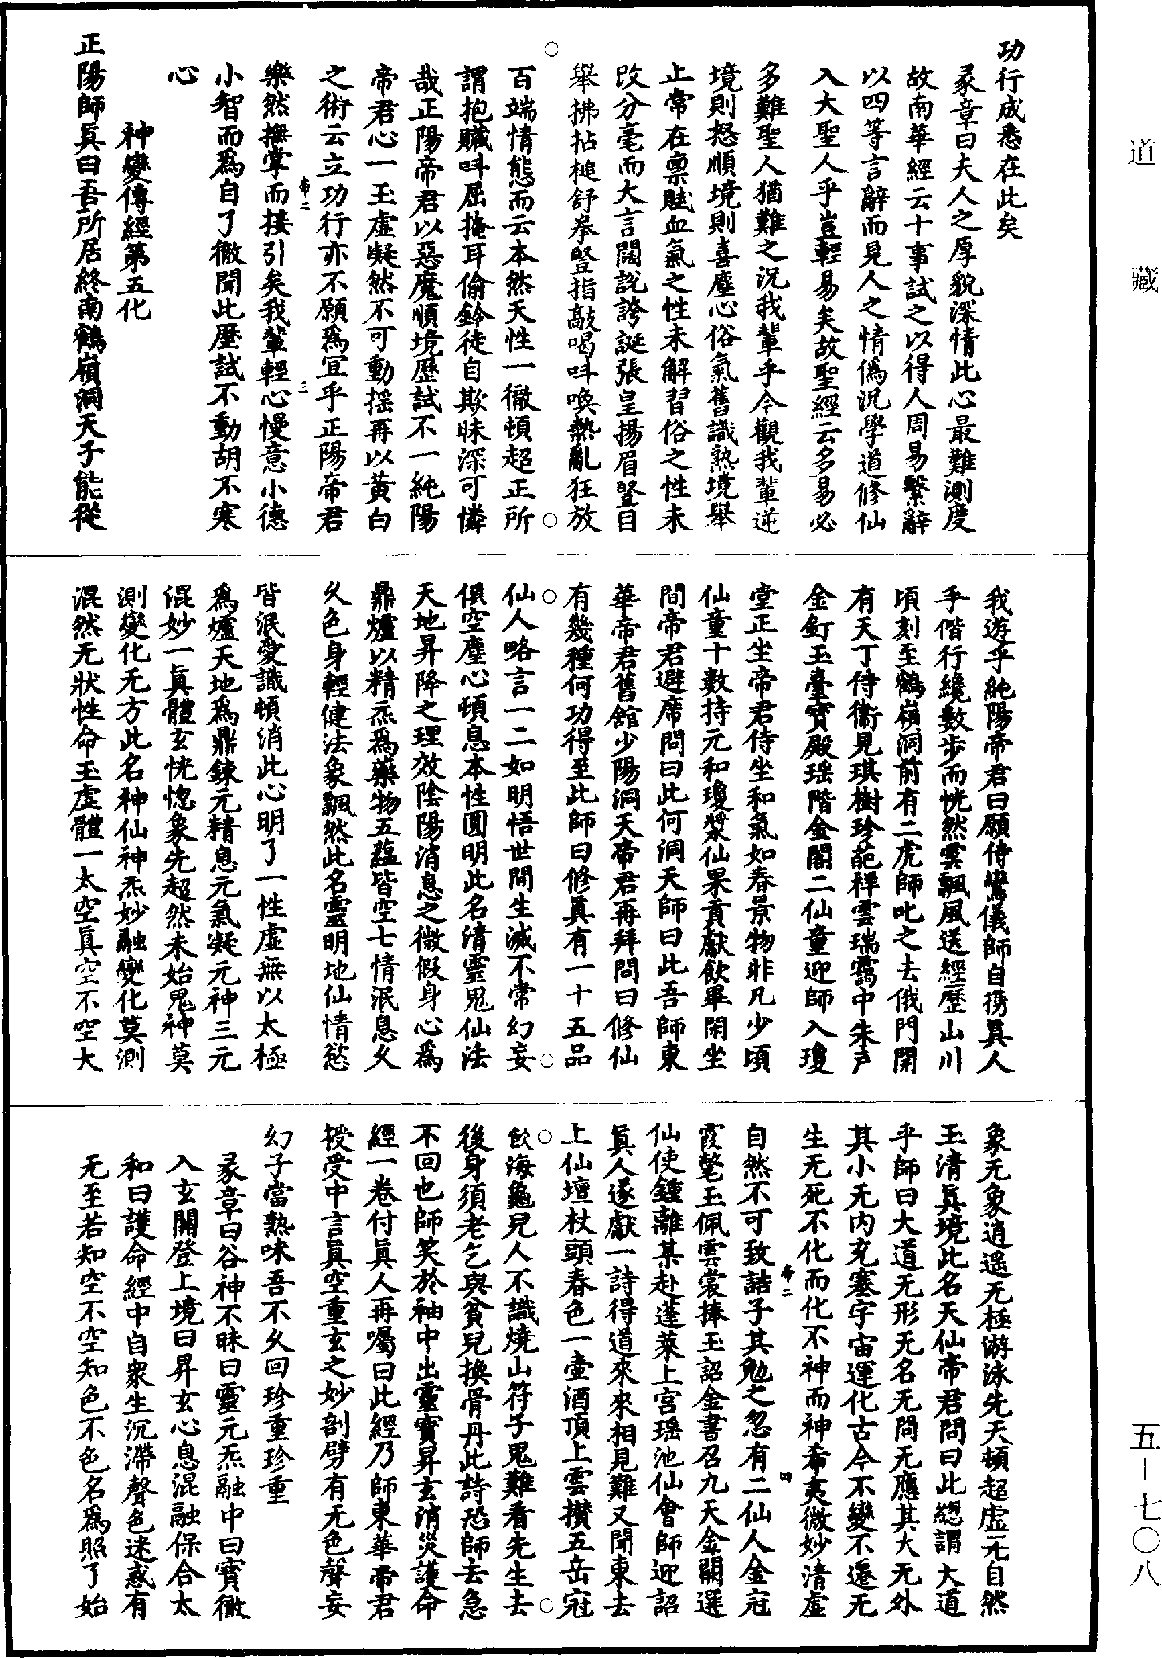 道藏
五—七〇八
功行成悉在此矣
彖章曰夫人之厚貌深情此心最難測度
故南華經云十事試之以得人周易繫辭
以四等言辭而見人之情僞況學道修仙
入大聖人乎豈輕易矣故聖經云多易必
多難聖人猶難之況我輩乎今觀我輩逆
境則怒順境則喜塵心俗氣舊識熟境舉
止常在禀賦血氣之性未解習俗之性未
改分毫而大言闊說誇誕張皇揚眉竪目
舉拂拈槌舒拳竪指敲喝呌喚熱亂狂放
百端情態而云本然天性一徹頓超正所
謂抱贓呌屈掩耳偷鈴徒自欺昧深可憐
哉正陽帝君以惡魔順境歷試不一純陽
帝君心一玉虛凝然不可動搖再以黄白
之術云立功行亦不願爲宜乎正陽帝君
樂然撫掌而接引矣我輩輕心慢意小德
小智而爲自了徹聞此歷試不動胡不寒
心
神變傳經第五化
正陽師真曰吾所居終南鶴嶺洞天子能從
我遊乎純陽帝君曰願侍鸞儀師自携真人
手偕行纔數步而恍然雲飄風送經歷山川
頃刻至鶴嶺洞前有二虎師叱之去俄門開
有天丁侍衛見琪樹珍葩祥雲瑞靄中朱户
金釘玉臺寶殿瑶階金閣二仙童迎師入瓊
堂正坐帝君侍坐和氣如春景物非凡少頃
仙童十數持元和瓊漿仙果貢獻飲畢閑坐
間帝君避席問曰此何洞天師曰此吾師東
華帝君舊館少陽洞天帝君再拜問曰修仙
有幾種何功得至此師曰修真有一十五品
仙人略言一二如明悟世間生滅不常幻妄
俱空塵心頓息本性圓明此名清靈鬼仙法
天地昇降之理效陰陽消息之微假身心爲
鼎爐以精炁爲藥物五蘊皆空七情泯息久
久色身輕健法象飄然此名靈明地仙情慾
皆泯愛識頓消此心明了一性虛無以太極
爲爐天地爲鼎鍊元精息元氣凝元神三元
混妙一真體玄恍惚象先超然未始鬼神莫
測變化无方此名神仙神炁妙融變化莫測
混然无狀性命玉虛體一太空真空不空大
象无象逍遥无極游泳先天頓超虛无自然
玉清真境此名天仙帝君問曰此緫謂大道
乎師曰大道无形无名无問无應其大无外
其小无内充塞宇宙運化古今不變不遷无
生无死不化而化不神而神希夷微妙清虛
自然不可致詰子其勉之忽有二仙人金冠
霞氅玉佩雲裳捧玉詔金書召九天金闕選
仙使鍾離某赴蓬萊上宫瑶池仙會師迎詔
真人遂獻一詩得道來來相見難又聞東去
上仙壇杖頭春色一壺酒頂上雲攢五岳冠
飲海龜兒人不識燒山符子鬼難看先生去
後身須老乞與貧兒換骨丹此詩恐師去急
不回也師笑於袖中出靈寶昇玄消災護命
經一卷付真人再囑曰此經乃師東華帝君
授受中言真空重玄之妙剖劈有无色聲妄
幻子當熟味吾不久回珍重珍重
彖章曰谷神不昧曰靈元炁融中曰寶徹
入玄關登上境曰昇玄心息混融保合太
和曰護命經中自衆生沉滯聲色迷惑有
无至若知空不空知色不色名爲照了始
帝二
三
帝二
四